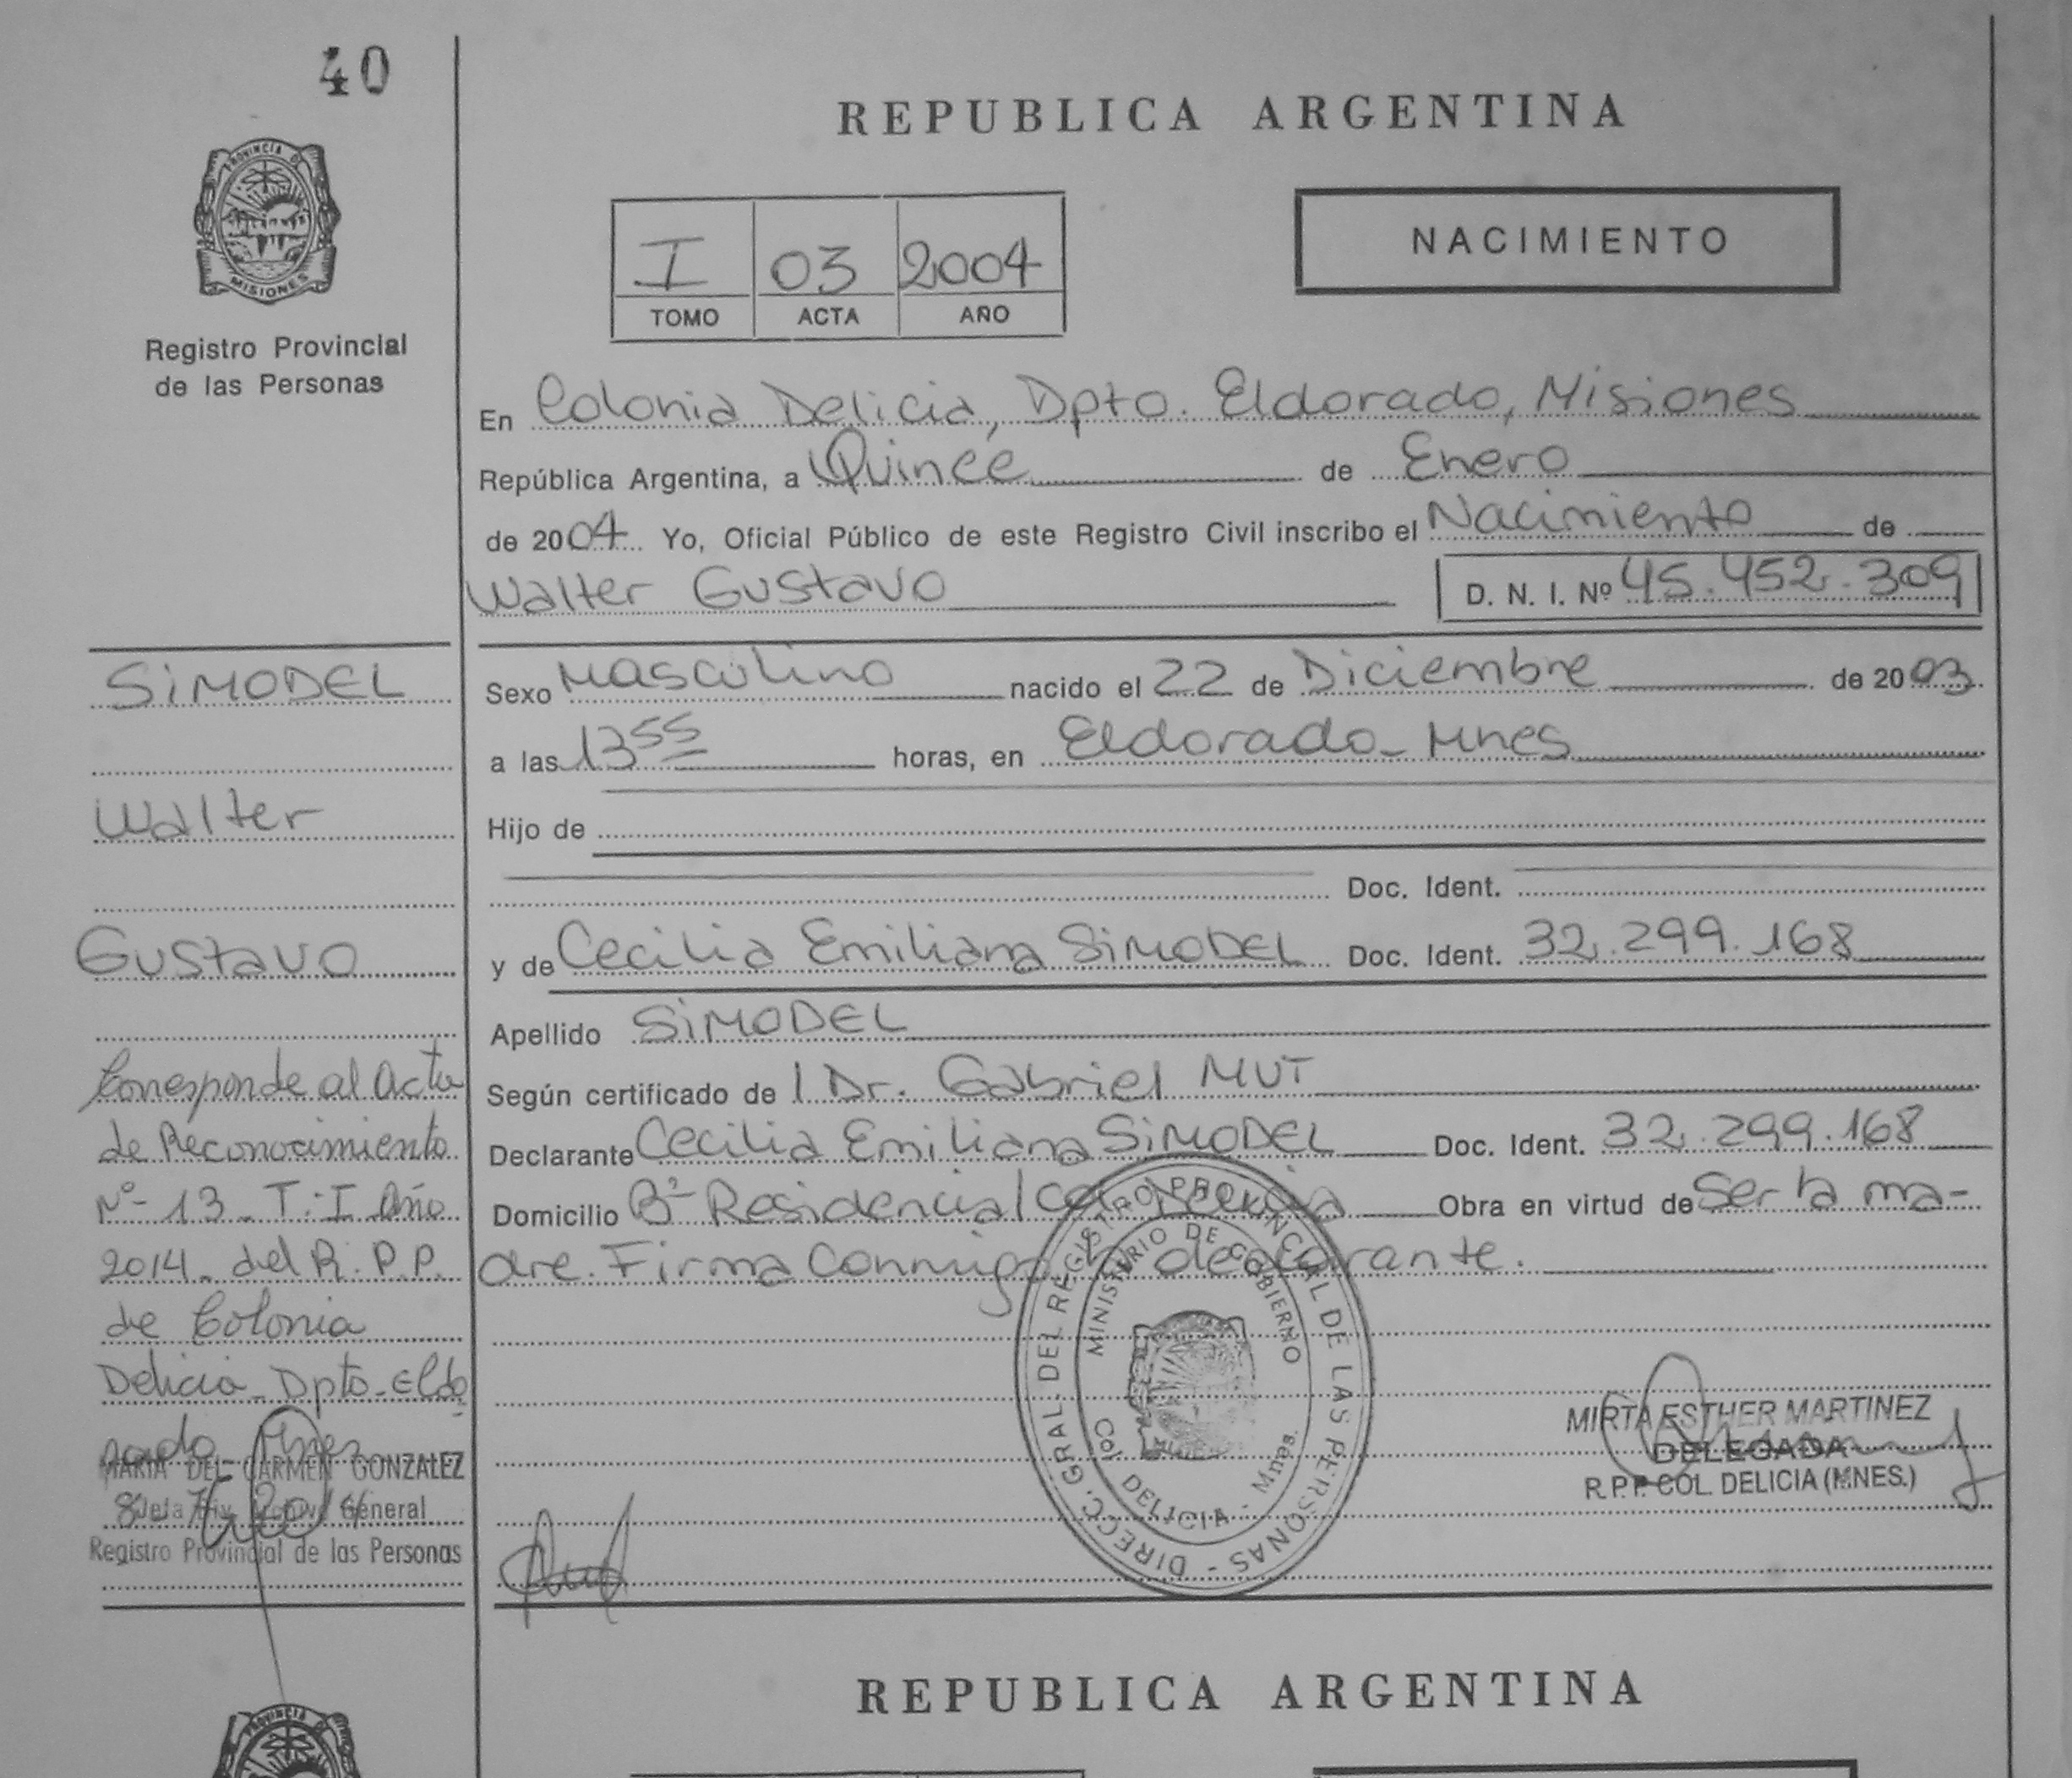 40
PROVINCIA DE
MISIONES
Registro Provincial
de las Personas
REPUBLICA ARGENTINA
NACIMIENTO
I 03 2004
TOMO ACTA AÑO
En Colonia Delicia, Dpto. Eldorado, Misiones
República Argentina, a Quince de Enero
de 2004 Yo, Oficial Público de este Registro Civil inscribo el Nacimiento de
Walter Gustavo D. N. I. Nº 45.452.309
Sexo Masculino nacido el 22 de Diciembre de 2003
a las 13 55 horas, en Eldorado - Mnes
Hijo de
Doc. Ident.
y de Cecilia Emiliana SiMODEL Doc. Ident. 32.299.168
Apellido SiMODEL
Según certificado de l Dr. Gabriel MUT
Declarante Cecilia Emiliana SiMODEL Doc. Ident. 32.299.168
Domicilio Bº Residencial Col. Delicia Obra en virtud de Ser la ma-
dre. Firma conmigo la declarante.
SiMODEL
Walter
Gustavo
Corresponde al Acta
de Reconocimiento
Nº 13 - T: I Año
2014 - del R. P. P.
de Colonia
Delicia - Dpto - Eldo
rado Mnes
MARIA DEL CARMEN GONZALEZ
Jefa Div. Archivo General
Registro Provincial de las Personas
DIRECC. GRAL. DEL REGISTRO PROVINCIAL DE LAS PERSONAS -
MINISTERIO DE GOBIERNO
Col. DELICIA - Mnes.
MIRTA ESTHER MARTINEZ
DELEGADA
R.P.P. COL. DELICIA (MNES.)
REPUBLICA ARGENTINA
PROVINCIA D